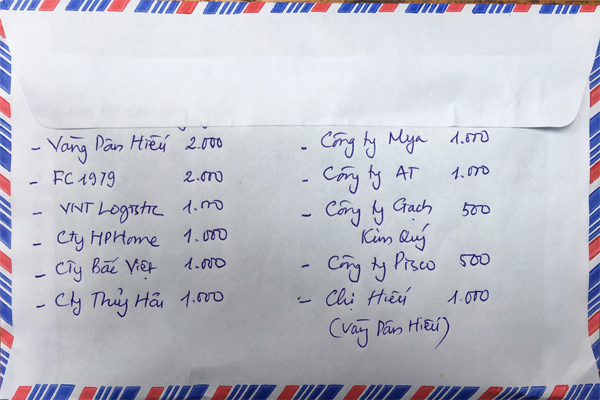 - Vàng Dân Hiếu 2.000
- FC 1979 2.000
- VNT Logistic 1.000
- Cty HPHome 1.000
- Cty Bắc Việt 1.000
- Cty Thủy Hải 1.000
- Công ty Mya 1.000
- Công ty AT 1.000
- Công ty Gạch 500
Kim Quý
- Công ty Pisco 500
- Chị Hiếu 1.000
(Vàng Dân Hiếu)